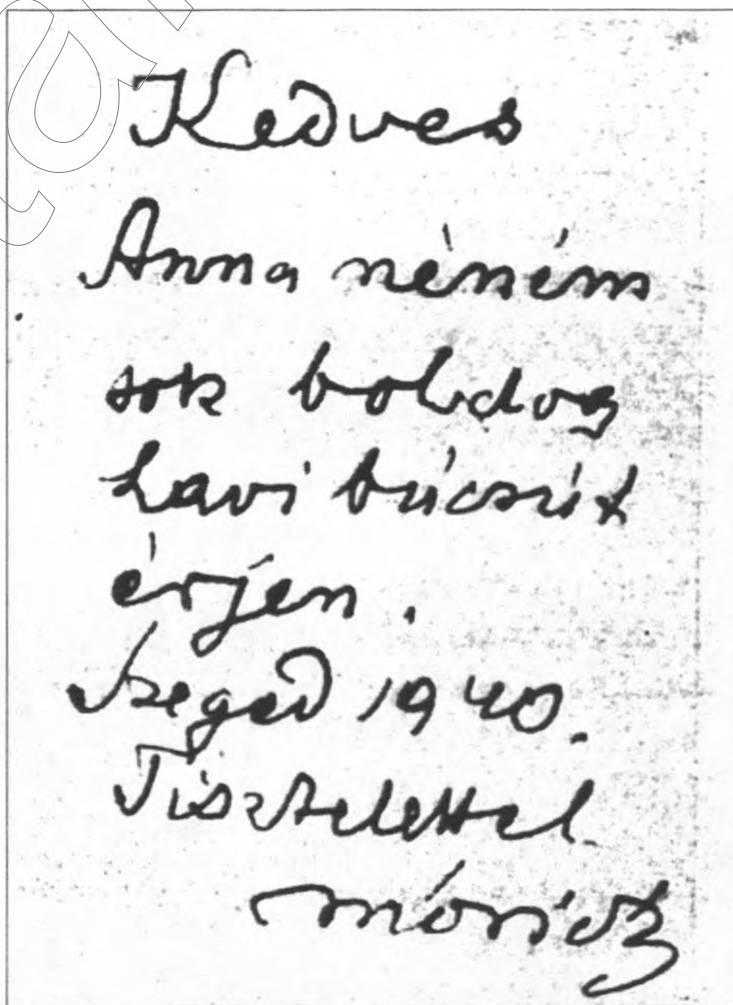 Kedves
Anna néném
sok boldog
havi búcsút
érjen.
Szeged 1940.
Tisztelettel
Móricz